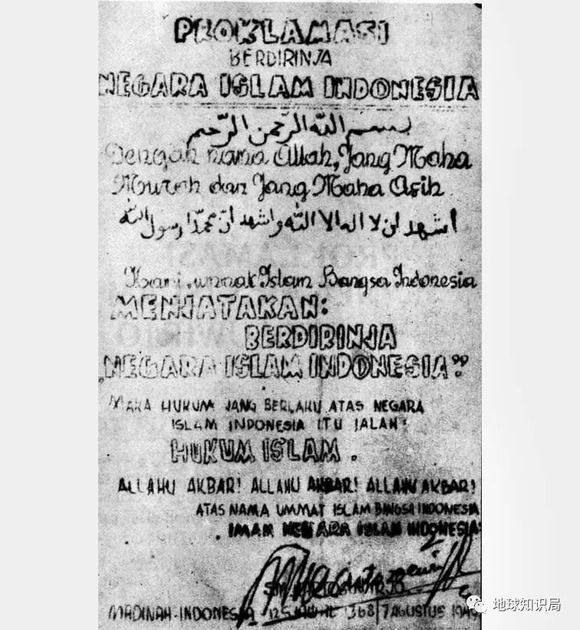 PROKLAMASI
BERDIRINJA
NEGARA ISLAM INDONESIA
بسم الله الرحمن الرحيم
Dengan nama Allah, Jang Maha
Murah dan Jang Maha Asih
اشهد ان لا اله الا الله واشهد ان محمدا رسول الله
Kami, ummat Islam Bangsa Indonesia
MENJATAKAN:
BERDIRINJA
„NEGARA ISLAM INDONESIA”
MAKA HUKUM JANG BERLAKU ATAS NEGARA
ISLAM INDONESIA ITU IALAH:
HUKUM ISLAM.
ALLAHU AKBAR! ALLAHU AKBAR! ALLAHU AKBAR!
ATAS NAMA UMMAT ISLAM BANGSA INDONESIA
IMAM NEGARA ISLAM INDONESIA
MADINAH-INDONESIA, 12 1368/7 AGUSTUS
地球知识局